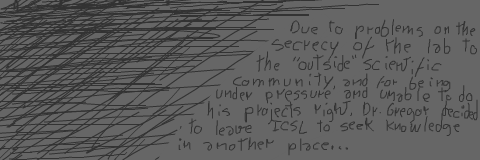 Due to problems on the
secrecy of the lab to
the "outside" scientific
community, and for being
under pressure and unable to do
his projects right, Dr. Gregor decided
to leave ICSL to seek knowledge
in another place...